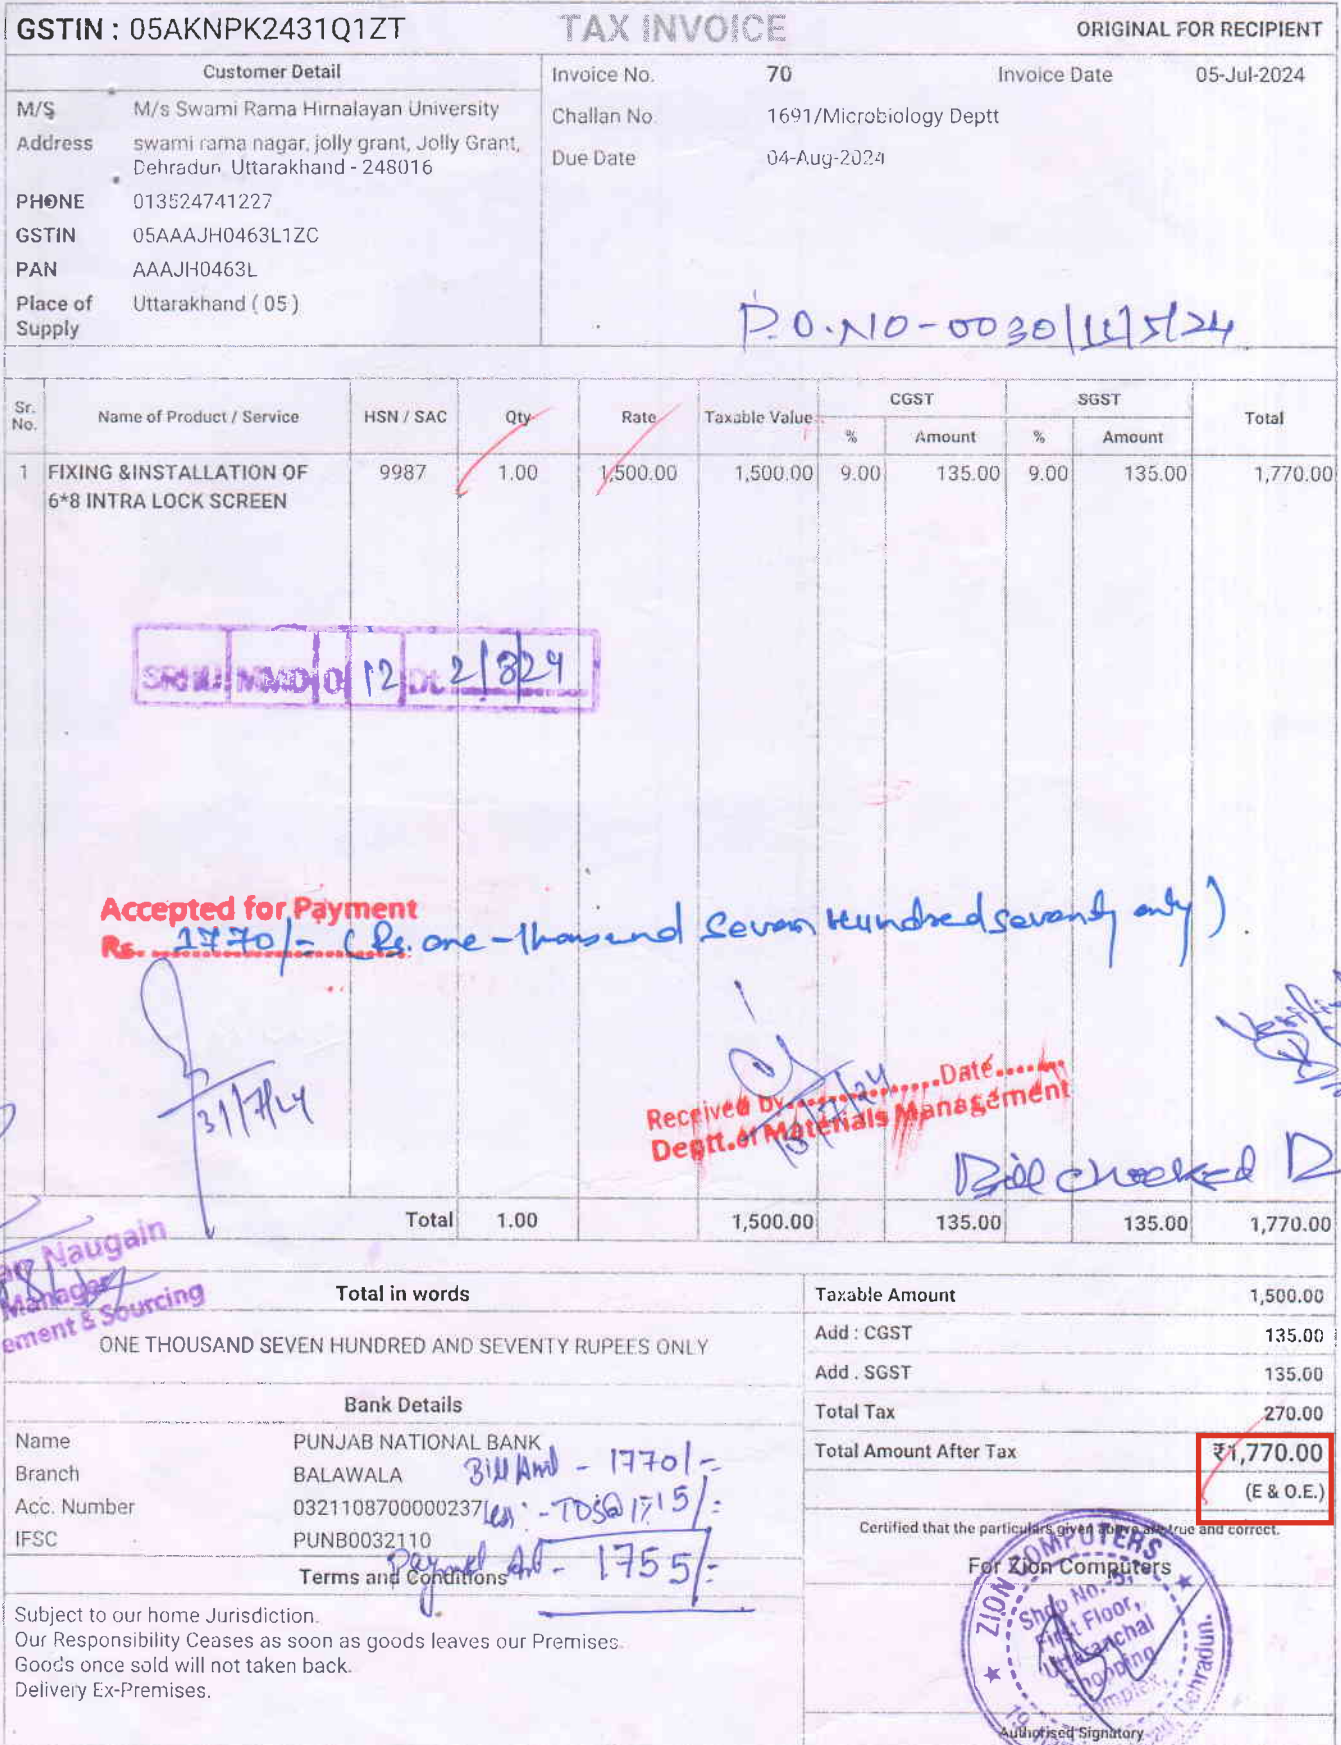 GSTIN : 05AKNPK2431Q1ZT TAX INVOICE ORIGINAL FOR RECIPIENT
Customer Detail
M/S M/s Swami Rama Himalayan University
Address swami rama nagar, jolly grant, Jolly Grant,
Dehradun Uttarakhand - 248016
PHONE 013524741227
GSTIN 05AAAJH0463L1ZC
PAN AAAJH0463L
Place of Supply Uttarakhand ( 05 )
Invoice No. 70 Invoice Date 05-Jul-2024
Challan No 1691/Microbiology Deptt
Due Date 04-Aug-2024
P.O.NO-0030/11/5/24
Sr. No. Name of Product / Service HSN / SAC Qty Rate Taxable Value CGST SGST Total
% Amount % Amount
1 FIXING &INSTALLATION OF 9987 1.00 1,500.00 1,500.00 9.00 135.00 9.00 135.00 1,770.00
6*8 INTRA LOCK SCREEN
SRHU MMD 12 Dt. 2/8/24
Accepted for Payment
Rs. 1770/- (Rs. one-thousand Seven Hundred Seventy only)
31/7/24
Received by Date
Deptt.of Materials Management
Bill checked
Total 1.00 1,500.00 135.00 135.00 1,770.00
Naugain
Manager
ement & Sourcing
Total in words
ONE THOUSAND SEVEN HUNDRED AND SEVENTY RUPEES ONLY
Bank Details
Name PUNJAB NATIONAL BANK
Branch BALAWALA
Acc. Number 0321108700000237
IFSC PUNB0032110
Bill Amt - 1770/-
Less :- TDS@1% 15/-
Payment Amt - 1755/-
Terms and Conditions
Subject to our home Jurisdiction.
Our Responsibility Ceases as soon as goods leaves our Premises.
Goods once sold will not taken back.
Delivery Ex-Premises.
Taxable Amount 1,500.00
Add : CGST 135.00
Add . SGST 135.00
Total Tax 270.00
Total Amount After Tax ₹1,770.00
(E & O.E.)
Certified that the particulars given above are true and correct.
For Zion Computers
ZION COMPUTERS
Shop No.-5,
First Floor,
Uttaranchal
Shopping
Complex,
Dehradun.
Authorised Signatory